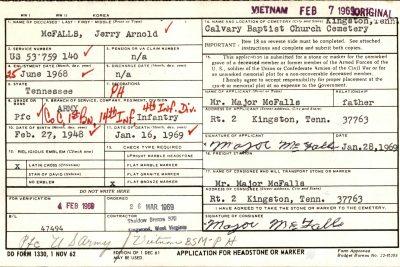 WW I WW II KOREA VIETNAM FEB 7 1969 ORIGINAL
1. NAME OF DECEASED (LAST - FIRST - MIDDLE) (Print or Type)
McFALLS, Jerry Arnold
14. NAME AND LOCATION OF CEMETERY Kingston, Tenn.
Calvary Baptist Church Cemetery
2. SERVICE NUMBER
US 53 759 140
3. PENSION OR VA CLAIM NUMBER
n/a
IMPORTANT: Item 18 on reverse side must be completed. See attached instructions and complete and submit both copies.
4. ENLISTMENT DATE (Month, day, year)
25 June 1968
5. DISCHARGE DATE (Month, day, year)
n/a
15. This application is submitted for a stone or marker for the unmarked grave of a deceased member or former member of the Armed Forces of the U.S., soldier of the Union or Confederate Armies of the Civil War or for an unmarked memorial plot for a non-recoverable deceased member.
I hereby agree to accept responsibility for proper placement at the grave or memorial plot at no expense to the Government.
6. STATE
Tennessee
7. MEDALS
PH
NAME OF APPLICANT (Print or Type) RELATIONSHIP
Mr. Major McFalls father
8. GRADE OR RANK
Pfc
9. BRANCH OF SERVICE, COMPANY, REGIMENT, DIVISION
ARMY
Co C 1st Bn, 14th Inf, 4th Inf. Div.
Infantry
Rt. 2 Kingston, Tenn. 37763
10. DATE OF BIRTH (Month, day, year)
Feb. 27, 1948
11. DATE OF DEATH (Month, day, year)
Jan. 16, 1969
SIGNATURE OF APPLICANT DATE
Major McFalls Jan. 28, 1969
12. RELIGIOUS EMBLEM (Check one)
13. CHECK TYPE REQUIRED
16. FREIGHT STATION
UPRIGHT MARBLE HEADSTONE
X LATIN CROSS (Christian)
FLAT MARBLE MARKER
17. NAME OF CONSIGNEE WHO WILL TRANSPORT STONE OR MARKER
Mr. Major McFalls
STAR OF DAVID (Jewish)
X FLAT GRANITE MARKER
NO EMBLEM
FLAT BRONZE MARKER
Rt. 2 Kingston, Tenn. 37763
DO NOT WRITE HERE
I HAVE AGREED TO TAKE THE STONE OR MARKER TO THE CEMETERY.
4 FEB 1969
26 MAR 1969
SIGNATURE OF CONSIGNEE
Major McFalls
B/L
47494
Kingwood, West Virginia
Pfc US Army Vietnam BSM-PH
DD FORM 1330, 1 NOV 62
EDITION OF 1 DEC 61 MAY BE USED.
APPLICATION FOR HEADSTONE OR MARKER
Form Approved